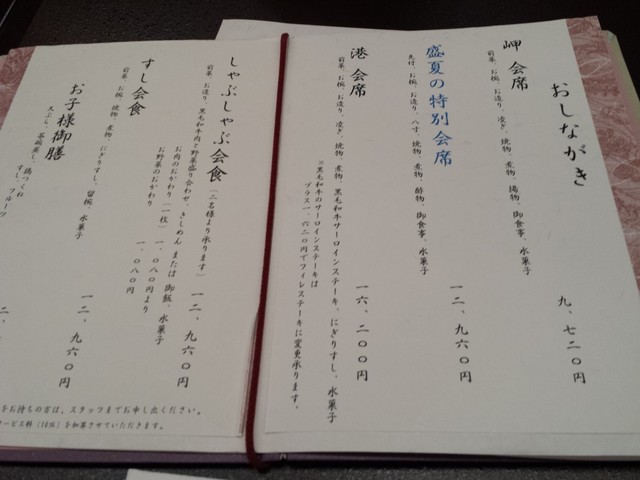 おしながき
岬 会席
前菜、お椀、お造り、凌ぎ、焼物、煮物、揚物、御食事、水菓子
九、七二〇円
盛夏の特別会席
先付、お椀、お造り、八寸、焼物、煮物、酢物、御食事、水菓子
一二、九六〇円
港 会席
前菜、お椀、お造り、凌ぎ、焼物、煮物、黒毛和牛サーロインステーキ、にぎりすし、水菓子
一六、二〇〇円
※黒毛和牛のサーロインステーキは
プラス一、六二〇円でフィレステーキに変更承ります。
しゃぶしゃぶ会食(二名様より承ります)
前菜、お造り、黒毛和牛肉と野菜盛り合わせ、きしめん または 御飯、水菓子
一二、九六〇円
お肉のおかわり(一枚) 一、〇八〇円より
お野菜のおかわり 一、〇八〇円
すし会食
前菜、お椀、焼物、煮物、にぎりすし、留椀、水菓子
一二、九六〇円
お子様御膳
天ぷら、茶碗蒸し、鶏つくね
すし、フルーツ
二、
をお持ちの方は、スタッフまでお申し出ください。
サービス料(10%)を加算させていただきます。